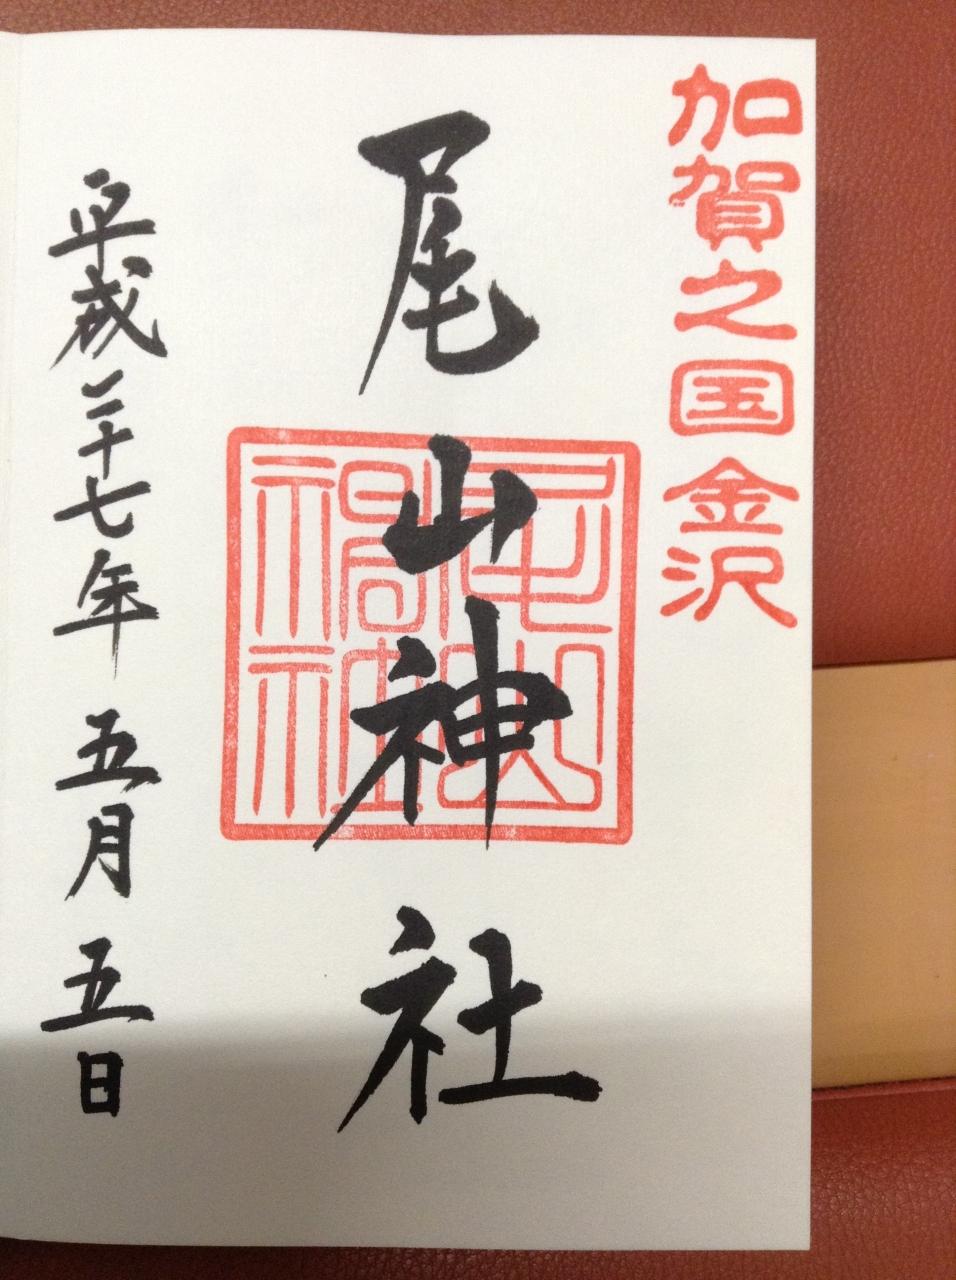 加賀之国金沢
尾山神社
平成二十七年五月五日